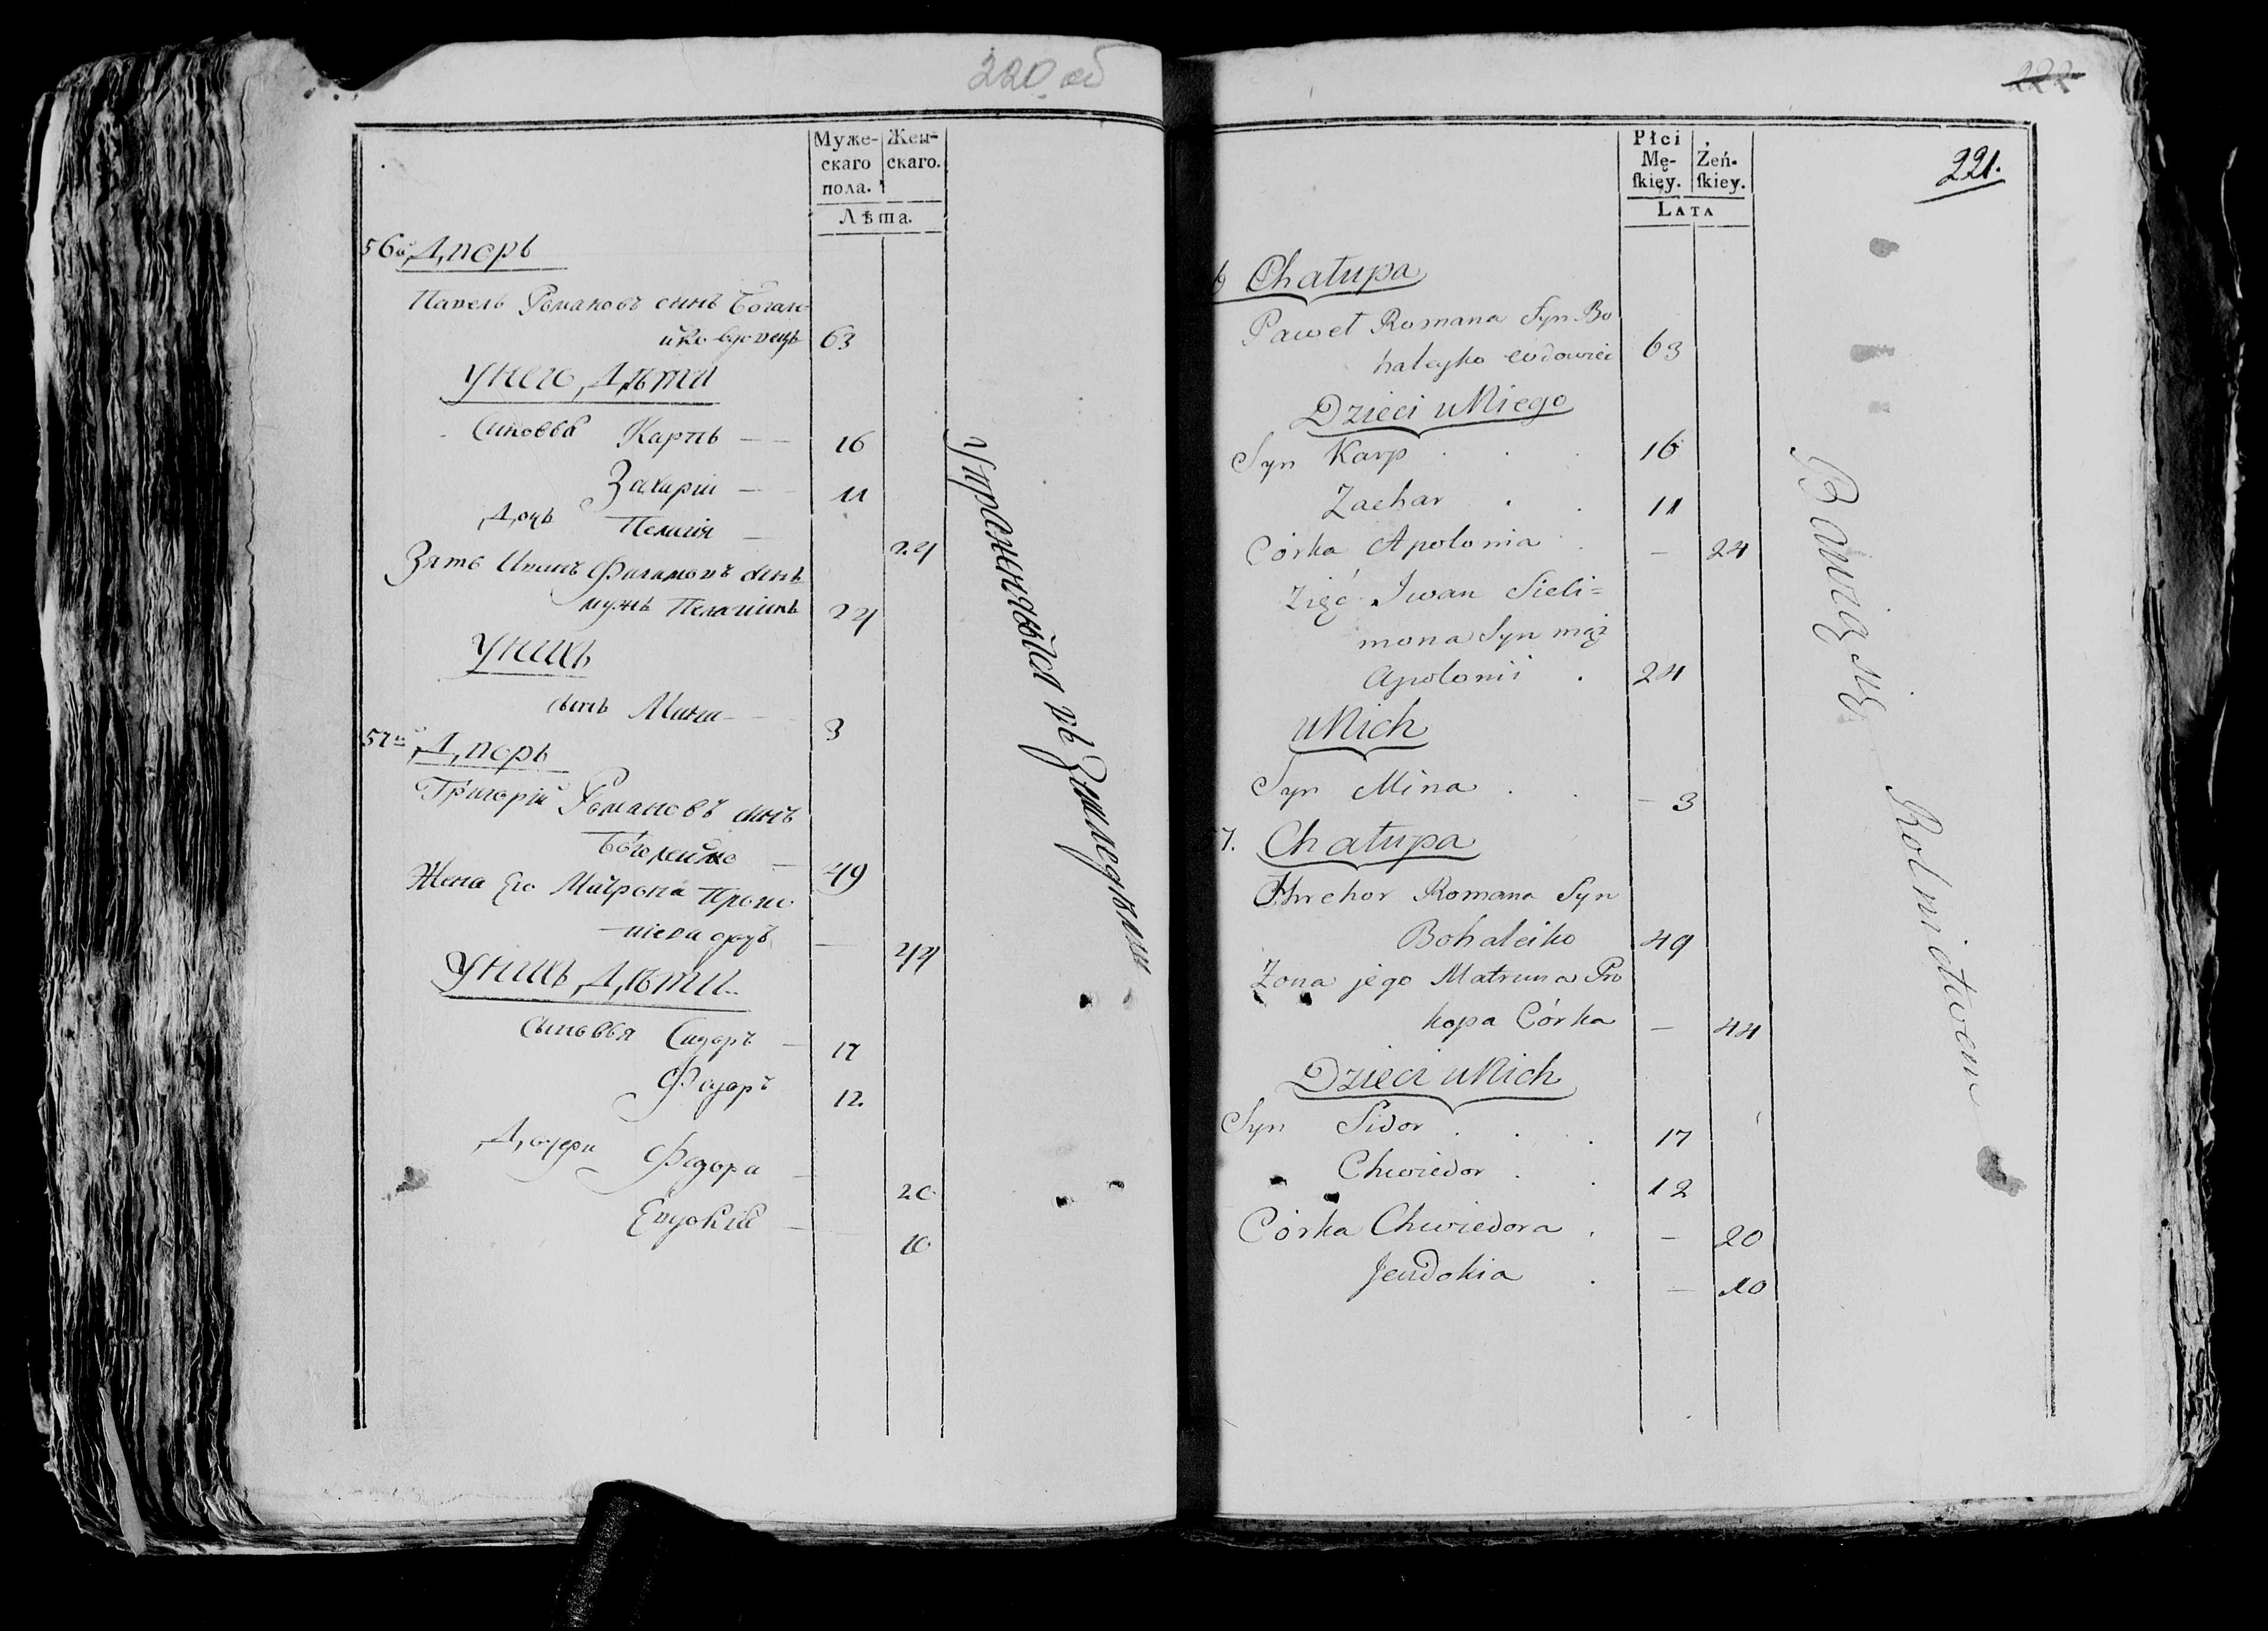 220 об
Муже-
скаго
пола.
Жен-
скаго.
Лѣта.
56й Дворъ
Павелъ Романовъ сынъ Богале-
йко вдовецъ 63
У него Дѣти
Синовья Карпъ — 16
Захарiй — 11
Дочь Пелагiя — 24
Зять Иванъ Филимоновъ сынъ
мужъ Пелагiинъ 24
У нихъ
сынъ Мина — 3
57й Дворъ
Григорiй Романовъ сынъ
Богалейко — 49
Жена Его Матрона Проко-
пiева дочь — 44
У нихъ Дѣти
Сыновья Сидоръ — 17
Федоръ 12
Дочери Федора — 20
Евдокiя — 10
Упражняются въ Земледѣлiи
222
221.
Płci
Mę-
ſkiey.
Żeń-
ſkiey.
LATA
6 Chałupa
Paweł Romana Syn Bo
haleyko wdowiec 63
Dzieci u Niego
Syn Karp . . . 16
Zachar . . 11
Córka Apolonia . — 24
Zięć Iwan Fieli=
mona Syn mąż
Apolonii . 24
u Nich
Syn Mina . . — 3
7. Chałupa
Hrehor Romana Syn
Bohaleiko 49
Żona jego Matruna Pro
kopa Córka — 44
Dzieci u Nich
Syn Sidor . . . 17
Chwiedor . . 12
Córka Chwiedora . — 20
Jeudokia . — 10
Bawią się Rolnictwem